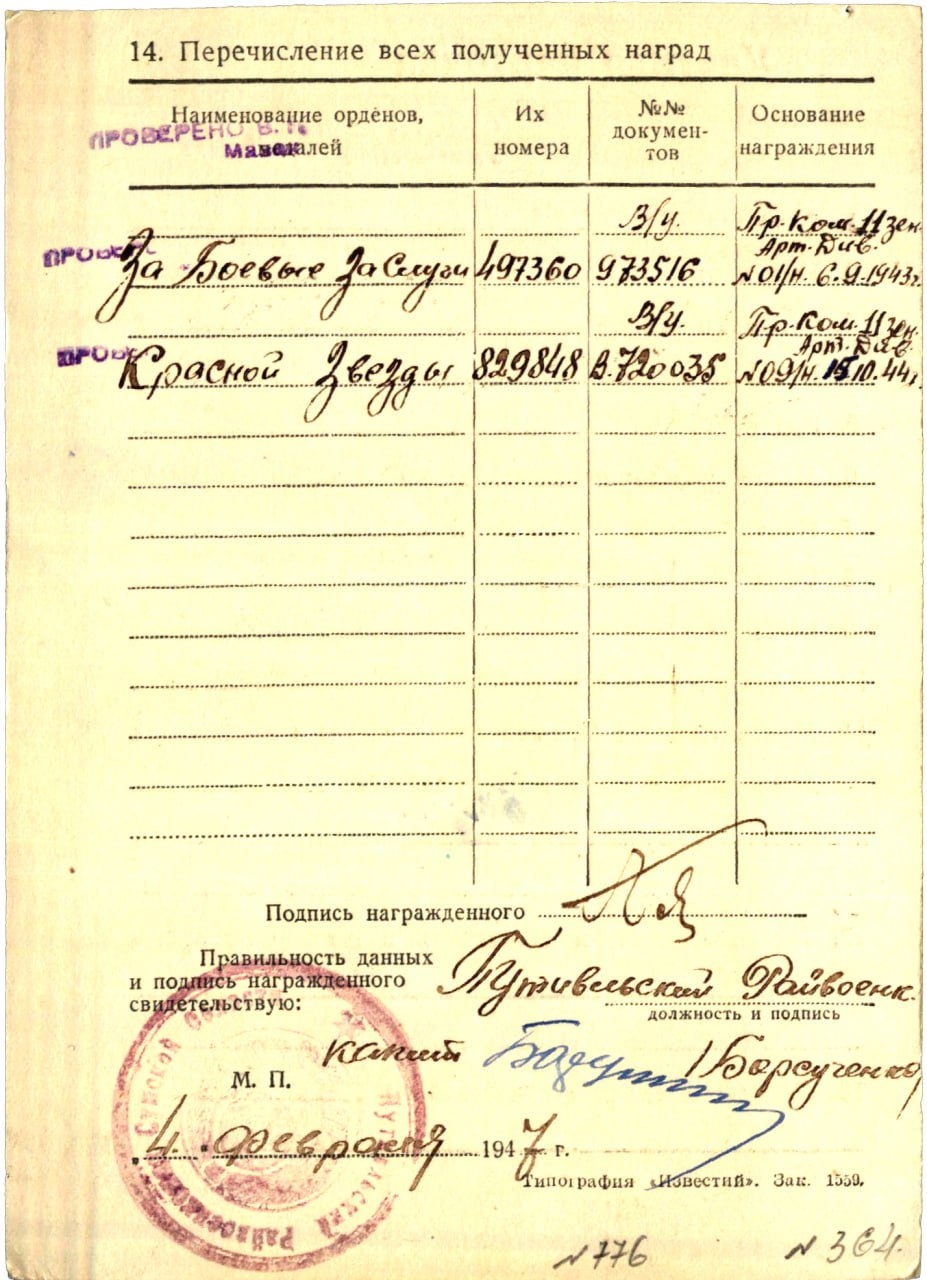 14. Перечисление всех полученных наград
Наименование орденов, медалей
Их номера
№№ докумен-тов
Основание награждения
ПРОВЕРЕНО
В/у.
Пр. Ком. 11 зен.
Арт. Див.
За Боевые Заслуги 497360 973516 №01/н. 6.9.1943г.
В/у.
Пр. Ком. 11 зен.
Арт. Див.
Красной Звезды 829848 В.720035 №09/н. 15.10.44г
Подпись награжденного
Правильность данных
и подпись награжденного
свидетельствую:
Путивльский Райвоенк.
должность и подпись
капит /Борсученко/
М. П.
„4." февраля 1947 г.
Типография «Известий». Зак. 1559.
N776
N 364.